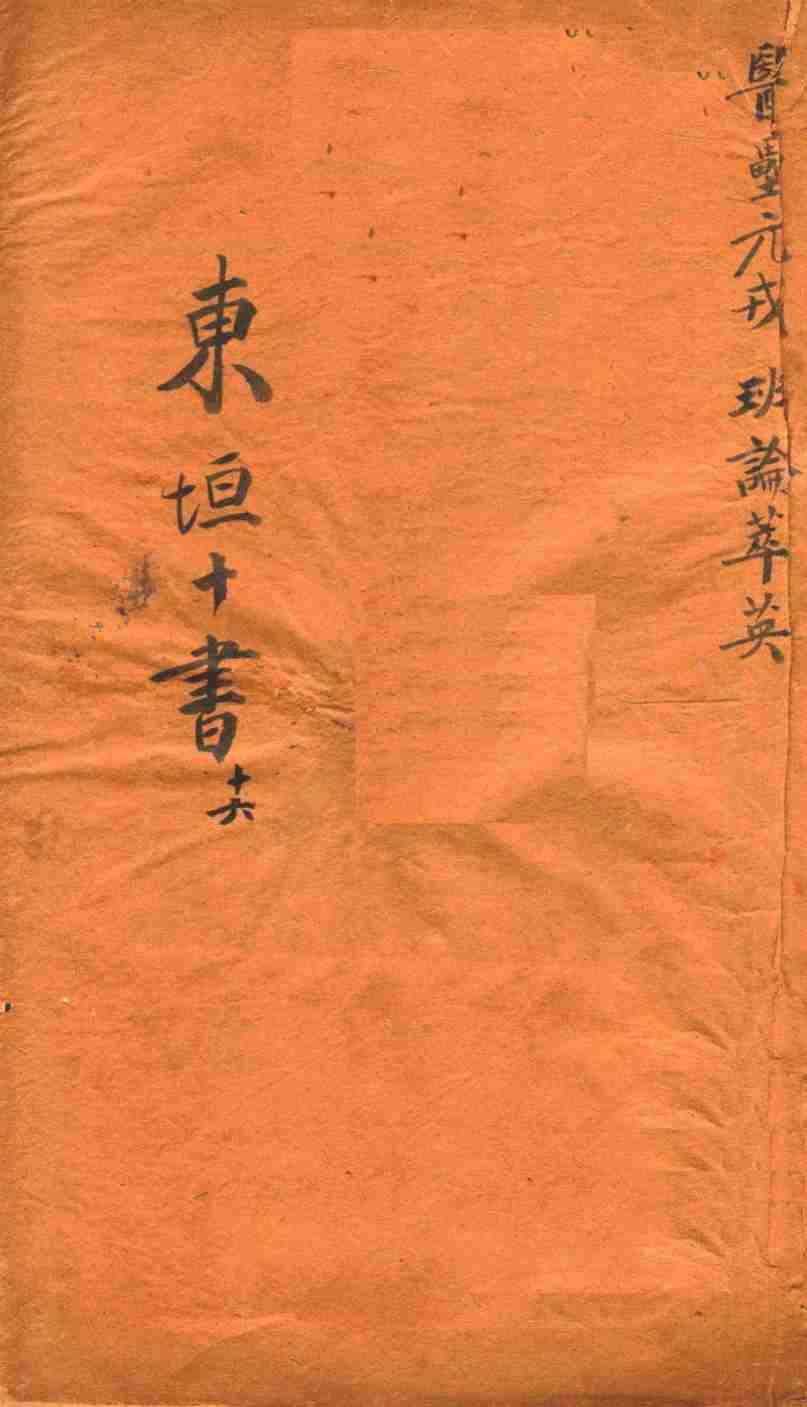 醫壘元戎 班論萃英
東垣十書 十六